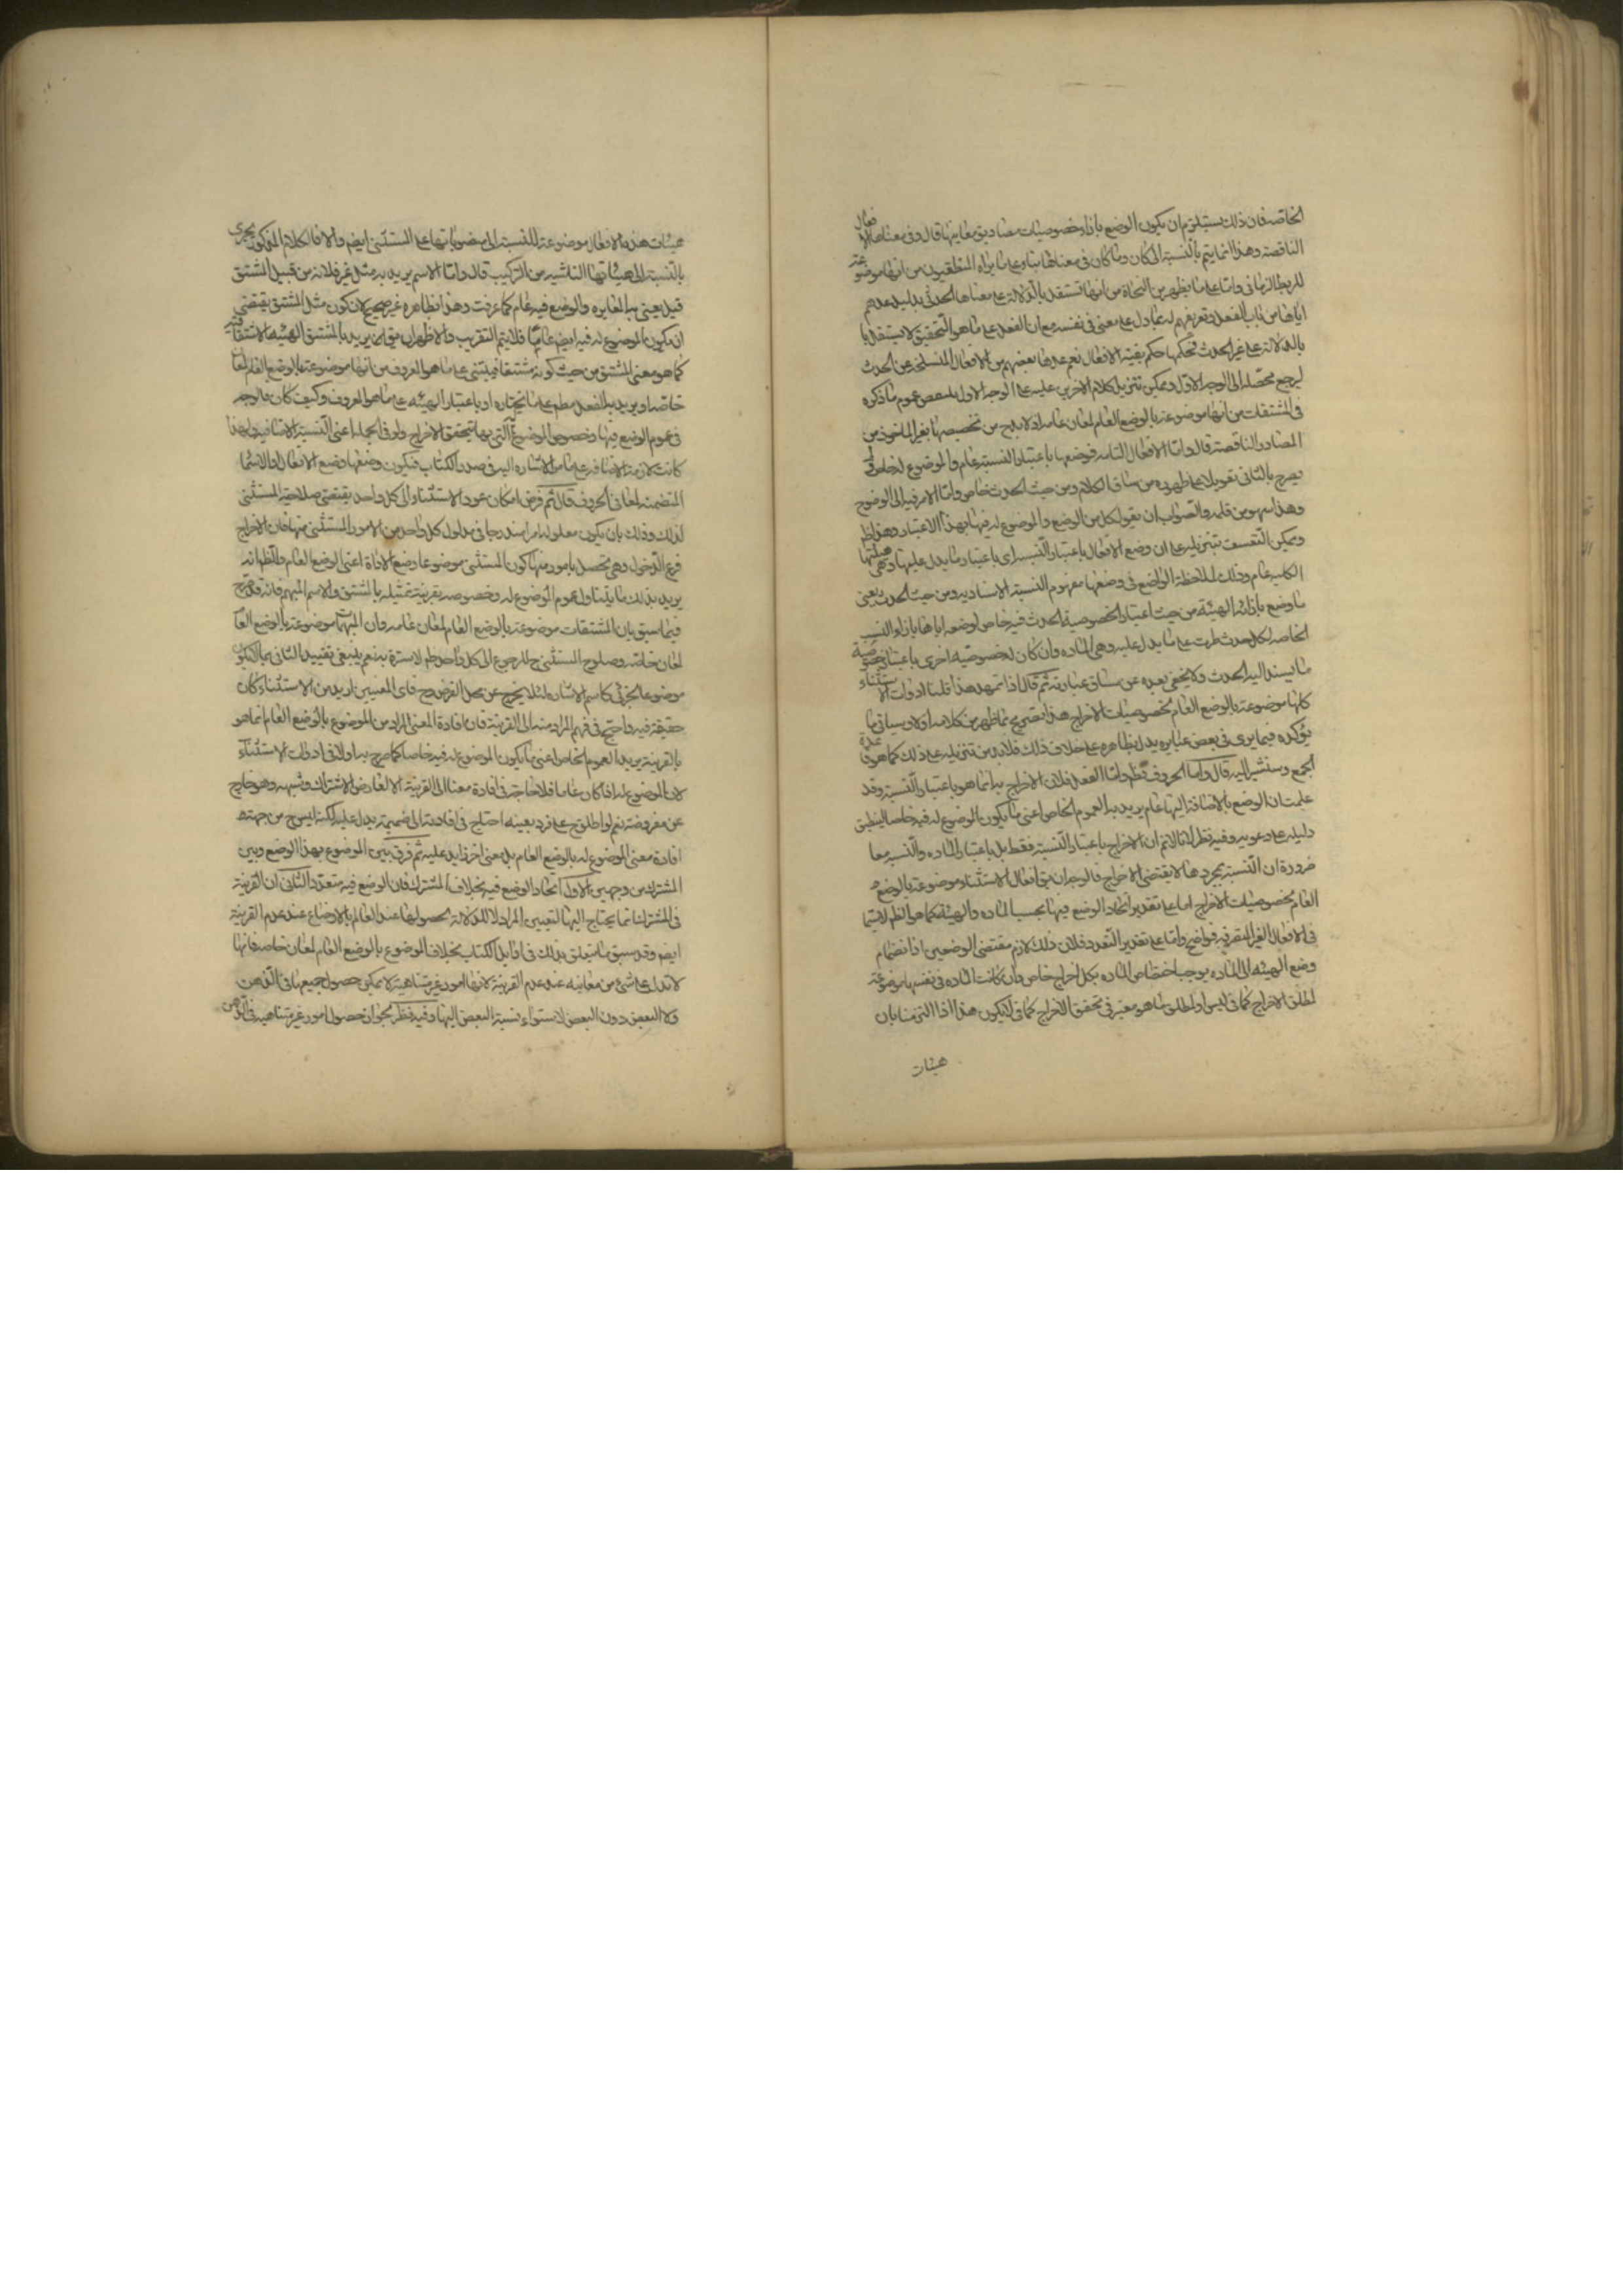 الخاصة فان ذلك يستلزم ان يكون الوضع بازاء خصوصيات مصاديق معانيها قال وفى معناها الافعال
الناقصة وهذا انما يتم بالنسبة الى كان وما كان فى معناها بناء على ما يراه المنطقيون من انها موضوعة
للربط الزمانى واما على ما يظهر من النحاة من انها تستقل بالدلالة على معناها الحدثى بدليل عدهم
اياها من باب الفعل وتعريفهم له بما دل على معنى فى نفسه مع ان الفعل على ما هو التحقيق لا يستقل
بالدلالة على غير الحدث فحكمها حكم بقية الافعال نعم عدها بعضهم من الافعال المنسلخة عن الحدث
ليرجع محصله الى الوجه الاول ويمكن تنزيل كلام الاخرين عليه على الوجه الاول عموم ما ذكره
فى المشتقات من انها موضوعة بالوضع العام لمعان عامة اذ لا بد ح من تخصيصها بغير الماخوذ من
المصادر الناقصة قال واما الافعال التامة فوضعها باعتبار النسبة عام والموضوع له خاص ولم
يصرح بالثانى تعويلا على ظهوره من مساق الكلام ومن حيث الحدث خاص واما الامر فيه الى الوضوح
وهذا سهو من قلمه والصواب ان يقول كل من الوضع والموضوع له فيها بهذا الاعتبار وهذا ظ
ويمكن التعسف بتنزيله على ان وضع الافعال باعتبار النسبة اى باعتبار ما يدل عليها وهى هيئتها
الكلية عام وذلك لملاحظة الواضع فى وضعها مفهوم النسبة الاسنادية ومن حيث الحدث يعنى
ما وضع بازائه الهيئة من حيث اعتبار الخصوصية الحدث فيه خاص لوضعه اياها بازاء النسب
الخاصة لكل حدث طرت على ما يدل عليه وهى المادة وان كان لخصوصيته اخرى باعتبار خصوصية
ما يسند اليه الحدث ولا يخفى بعده عن مساق عبارته ثم قال اذا تمهد هذا قلنا ادوات الاستثناء
كلها موضوعة بالوضع العام لخصوصيات الاخراج هذا تصريح بما ظهر من كلامه اولا وسياتى ما
يؤكده فيما يرى فى بعض عبايره يدل بظاهره على خلاف ذلك فلا بد من تنزيله على ذلك كما هو قاعدة
الجمع وسنشير اليه قال واما الحروف فظ واما الفعل فلان الاخراج به انما هو باعتبار النسبة وقد
علمت ان الوضع بالاضافة اليها عام يريد به العموم الخاص اعنى ما يكون الموضوع له فيه خاصا لينطبق
دليله على دعويه وفيه نظر لانا لا نم ان الاخراج باعتبار النسبة فقط بل باعتبار المادة والنسبة معا
ضرورة ان النسبة بمجردها لا يقتضى الاخراج فالوجه ان يق افعال الاستثناء موضوعة بالوضع
العام لخصوصيات الاخراج اما على تقدير اتحاد الوضع فيها بحسب المادة والهيئة كما هو الظ لا سيما
فى الافعال الغير المتصرفة فواضح واما على تقدير التعدد فلان ذلك لازم مقتضى الوضعين اذ انضمام
وضع الهيئة الى المادة يوجب اختصاص المادة بكل اخراج خاص وان كانت المادة فى نفسها موضوعة
لمطلق الاخراج كما فى ليس او لمطلق ما هو معتبر فى تحقق الاخراج كما فى لا يكون هذا اذا التزمنا بان
هيئات
هيئات هذه الافعال موضوعة للنسبة الى منصوباتها على المستثنى ايض والا فالكلام المذكور يجرى
بالنسبة الى هيئاتها الناشية من التركيب قال واما الاسم يريد به مثل غير فلانه من قبيل المشتق
قيل يعنى به المغايرة والوضع فيه عام كما عرفت وهذا بظاهره غير صحيح لان كون مثل المشتق يقتضى
ان يكون الموضوع له فيه ايض عاما فلا يتم التقريب والاظهر ان يق انه يريد بالمشتق الهيئة الاشتقاقية
كما هو معنى المشتق من حيث كونه مشتقا فيبتنى على ما هو المعروف من انها موضوعة بالوضع العام لمعان
خاصة او يريد به الفعل مطلقا على ما نختاره او باعتبار الهيئة على ما هو المعروف وكيف كان فالوجه
فى عموم الوضع فيها وخصوص الموضوع له التى بها يتحقق الاخراج ولو فى الجملة اعنى النسبة الاضافية ولهذا
كانت لازمة الاضافة على ما مر الاشارة اليه فى صدر الكتاب فيكون وضعها وضع الافعال او الاسماء
المتضمنة لمعانى الحروف قال ثم فرض امكان عود الاستثناء الى كل واحد يقتضى صلاحية المستثنى
لذلك وذلك بان يكون معلوله امر اندرجا فى مدلول كل واحد من الامور المستثنى منها فان الاخراج
فرع الدخول وهى تحصل بامور منها كون المستثنى موضوعا وضع الاداة اعنى الوضع العام والظ انه
يريد بذلك ما يتناول عموم الموضوع له وخصوصه بقرينة تمثيله بالمشتق والاسم المبهم فانه قد صرح
فيما سبق بان المشتقات موضوعة بالوضع العام لمعان عامة وان المبهمات موضوعة بالوضع العام
لمعان خاصة وصلوح المستثنى ح للرجوع الى كل واحد ظ لا سترة به نعم ينبغى تقييد الثانى بما لا يكون
موضوعا لجزئى كاسم الاشارة لئلا يخرج عن محل الفرض وح فاى المعنيين اريد من الاستثناء كان
حقيقة فيه واحتج فى فهم المراد منه الى القرينة فان افادة المعنى المراد من الموضوع بالوضع العام انما هو
بالقرينة يريد العموم الخاص اعنى ما يكون الموضوع له فيه خاصا كما صرح به اولا فى ادوات الاستثناء
لان الموضوع له اذا كان عاما فلا حاجة فى افادة معناه الى القرينة الا لعارض الاشتراك وشبهه وهو خارج
عن مفروضه نعم لو اطلق ح على فرد بعينه احتاج فى افادته الى ضميمة يدل عليه لكنه ليس ح من جهته
افادة معنى الموضوع له بالوضع العام بل معنى اخر زايد عليه ثم فرق بين الموضوع بهذا الوضع وبين
المشترك من وجهين الاول اتحاد الوضع فيه بخلاف المشترك فان الوضع فيه متعدد الثانى ان القرينة
فى المشترك انما يحتاج اليها لتعيين المراد لا للدلالة لحصولها عند العالم بالاوضاع عند عدم القرينة
ايض وقد سبق ما يتعلق بذلك فى اوايل الكتاب بخلاف الموضوع بالوضع العام لمعان خاصة فانها
لا تدل على شئ من معانيه عند عدم القرينة لانها امور غير متناهية لا يمكن حصول جميع ما فى الذهن
ولا البعض دون البعض لاستواء نسبة البعض اليها وفيه نظر لجواز حصول امور غير متناهية فى الذهن